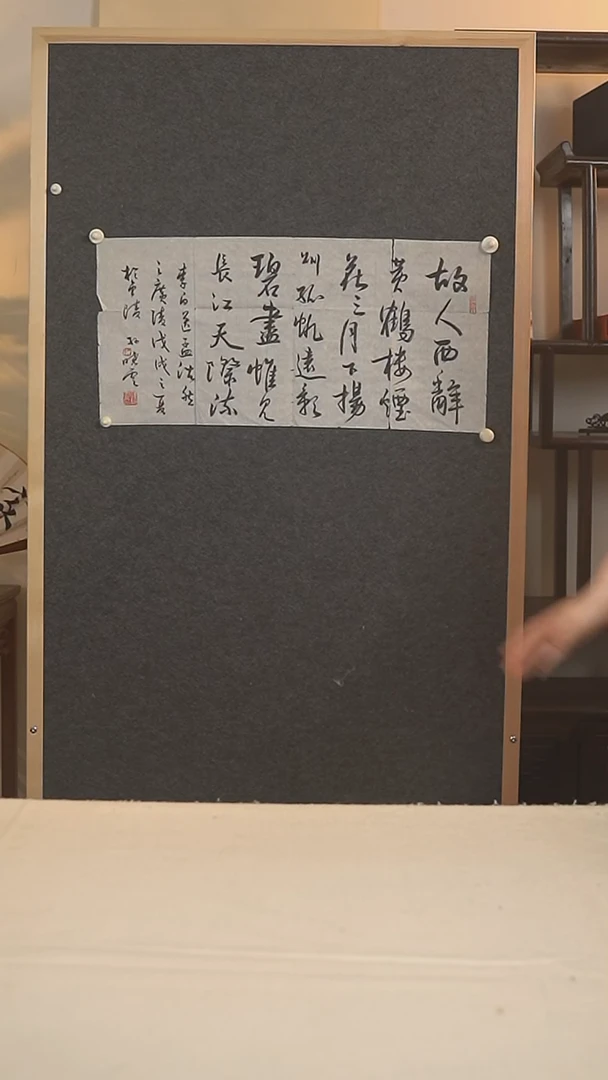 故人西辭
黃鶴樓煙
花三月下揚
州孤帆遠影
碧盡惟見
長江天際流
李白送孟浩然
之廣陵戊戌之夏
孫曉雲